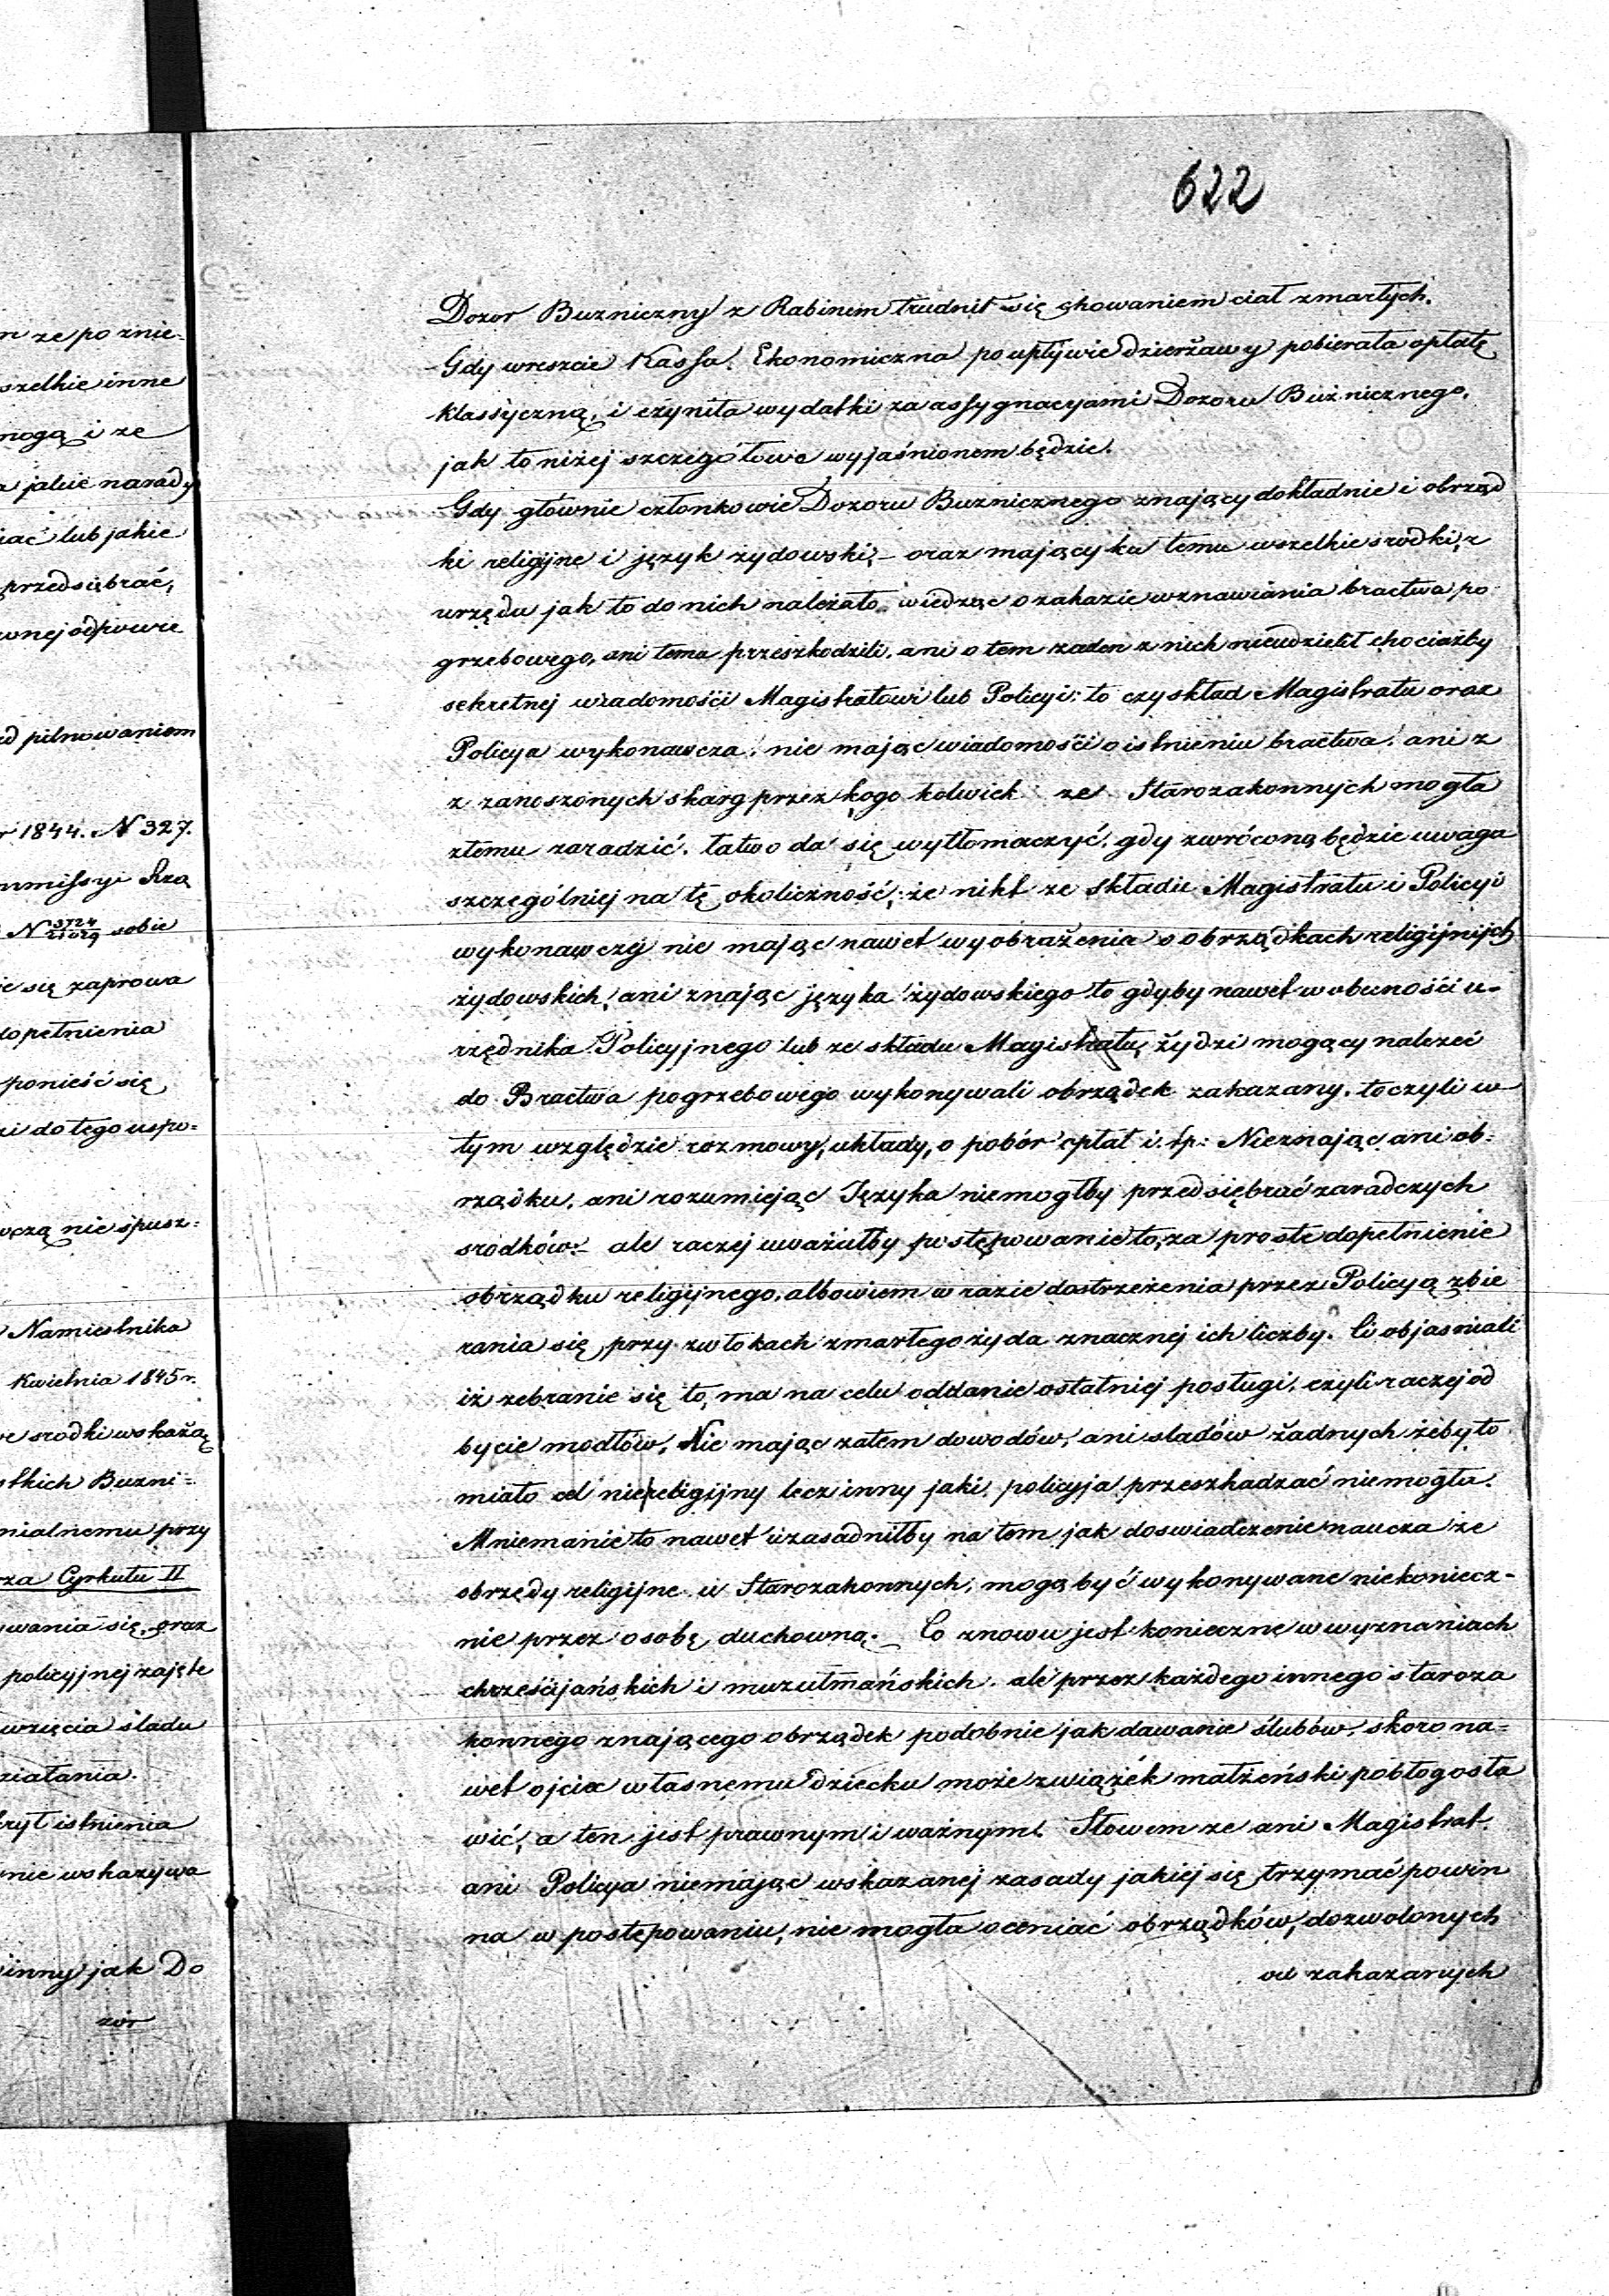 622
Dozor Buzniczny z Rabinem trudnił się chowaniem ciał zmarłych.
Gdy wreszcie Kassa Ekonomiczna po upływie dzierżawy pobierała opłatę
klassyczną, i czyniła wydatki za assygnacyami Dozoru Bużnicznego,
jak to niżej szczegółowo wyjaśnionem będzie.
Gdy głównie członkowie Dozoru Buznicznego znający dokładnie i obrząd
ki religijne i język żydowski, – oraz mający ku temu wszelkie srodki, z
urzędu jak to do nich należało, wiedząc o zakazie wznawiania bractwa po
grzebowego, ani temu przeszkodzili, ani o tem zaden z nich nieudzielił chociażby
sekretnej wiadomośći Magistratowi lub Policyi; to czy skład Magistratu oraz
Policya wykonawcza, nie mając wiadomośći o istnieniu bractwa, ani z
z zanoszonych skarg przez kogo kolwiek ze Starozakonnych mogła
złemu zaradzić, łatwo da się wytłomaczyć, gdy zwróconą będzie uwaga
szczególniej na tę okoliczność, że nikt ze składu Magistratu i Policyi
wykonawczej nie mając nawet wyobrażenia o obrządkach religijnych
żydowskich, ani znając języka żydowskiego to gdyby nawet w obecnośći u-
rzędnika Policyjnego lub ze składu Magistratu, żydzi mogący należeć
do Bractwa pogrzebowego wykonywali obrządek zakazany, toczyli w
tym względzie rozmowy, układy, o pobór opłat i. t.p: Nieznając ani ob=
rządku, ani rozumiejąc Języka niemogłby przedsiębrać zaradczych
srodków:– ale raczej uważałby postępowanie to, za proste dopełnienie
obrządku religijnego, albowiem w razie dostrzeżenia przez Policyą zbie
rania się, przy zwłokach zmarłego żyda znacznej ich liczby. Ci objasniali
iż zebranie się to, ma na celu oddanie ostatniej posługi, czyli raczej od
bycie modłów, Nie mając zatem dowodów, ani sladów żadnych żeby to
miało cel niereligijny lecz inny jaki, policyja przeszkadzać niemogła.
Mniemanie to nawet uzasadniłby na tem jak doswiadczenie naucza że
obrzędy religijne u Starozakonnych, mogą być wykonywane niekoniecz-
nie przez osobę duchowną. Co znowu jest konieczne w wyznaniach
chrześcijańskich i muzułmańskich, ale przez każdego innego staroza
konnego znającego obrządek podobnie jak dawanie ślubów, skoro na=
wet ojciec własnemu dziecku może związek małżeński pobłogosła
wić, a ten jest prawnym i ważnym. Słowem ze ani Magistrat
ani Policya niemając wskazanej zasady jakiej się trzymać powin
na w postępowaniu, nie mogła oceniać obrządków, dozwolonych
od zakazanych
szelkie inne
mogą i ze
jakie narady
lub jakie
przedsiębrać,
pilnowaniem
1844. N 327.
sobie
się zaprowa
dopełnienia
ponieść się
do tego uspo=
nie spusz=
Namiestnika
Kwietnia 1845 r.
srodki wskażą
Buzni=
przy
Cyrkułu II
się, oraz
policyjnej zajęte
wzięcia śladu
istnienia
nie wskazywa
inny jak Do
zor